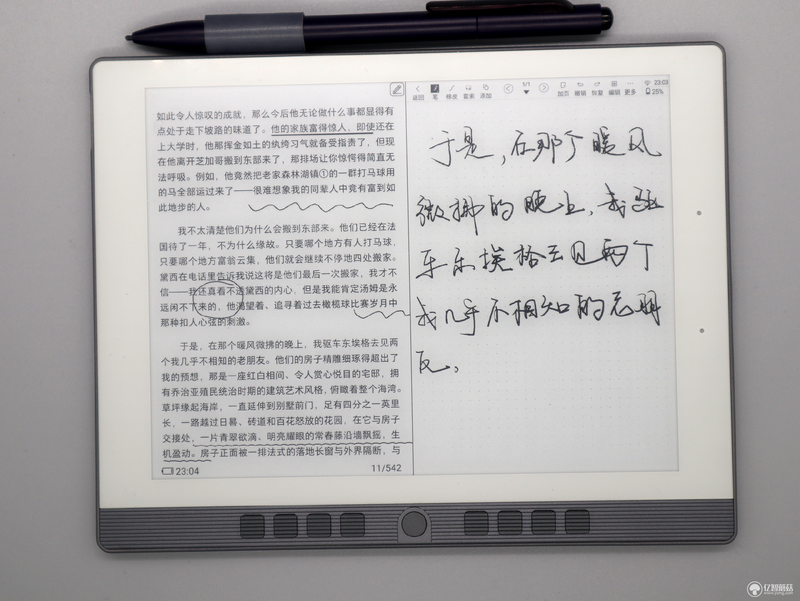 如此令人惊叹的成就，那么今后他无论做什么事都显得有
点处于走下坡路的味道了。他的家族富得惊人，即使还在
上大学时，他那挥金如土的纨绔习气就备受指责了，但现
在他离开芝加哥搬到东部来了，那排场让你惊愕得简直无
法呼吸。例如，他竟然把老家森林湖镇①的一群打马球用
的马全部运过来了——很难想象我的同辈人中竟有富到如
此地步的人。
我不太清楚他们为什么会搬到东部来。他们已经在法
国待了一年，不为什么缘故。只要哪个地方有人打马球，
只要哪个地方富翁云集，他们就会继续不停地四处搬家。
黛西在电话里告诉我说这将是他们最后一次搬家，我才不
信——我还真看不透黛西的内心，但是我能肯定汤姆是永
远闲不下来的，他渴望着、追寻着过去橄榄球比赛岁月中
那种扣人心弦的刺激。
于是，在那个暖风微拂的晚上，我驱车东埃格去见两
个我几乎不相知的老朋友。他们的房子精雕细琢得超出了
我的预想，那是一座红白相间、令人赏心悦目的宅邸，拥
有乔治亚殖民统治时期的建筑艺术风格，俯瞰着整个海湾。
草坪缘起海岸，一直延伸到别墅前门，足有四分之一英里
长，一路越过日晷、砖道和百花怒放的花园，在它与房子
交接处，一片青翠欲滴、明亮耀眼的常春藤沿墙飘摇，生
机盈动。房子正面被一排法式的落地长窗与外界隔断，与
23:04 11/542
返回 笔 橡皮 套索 添加 1/1 加页 撤销 恢复 编辑 更多 23:03 25%
于是，在那个暖风
微拂的晚上，我驱
车东埃格去见两个
我几乎不相知的老朋
友。
亿智蘑菇